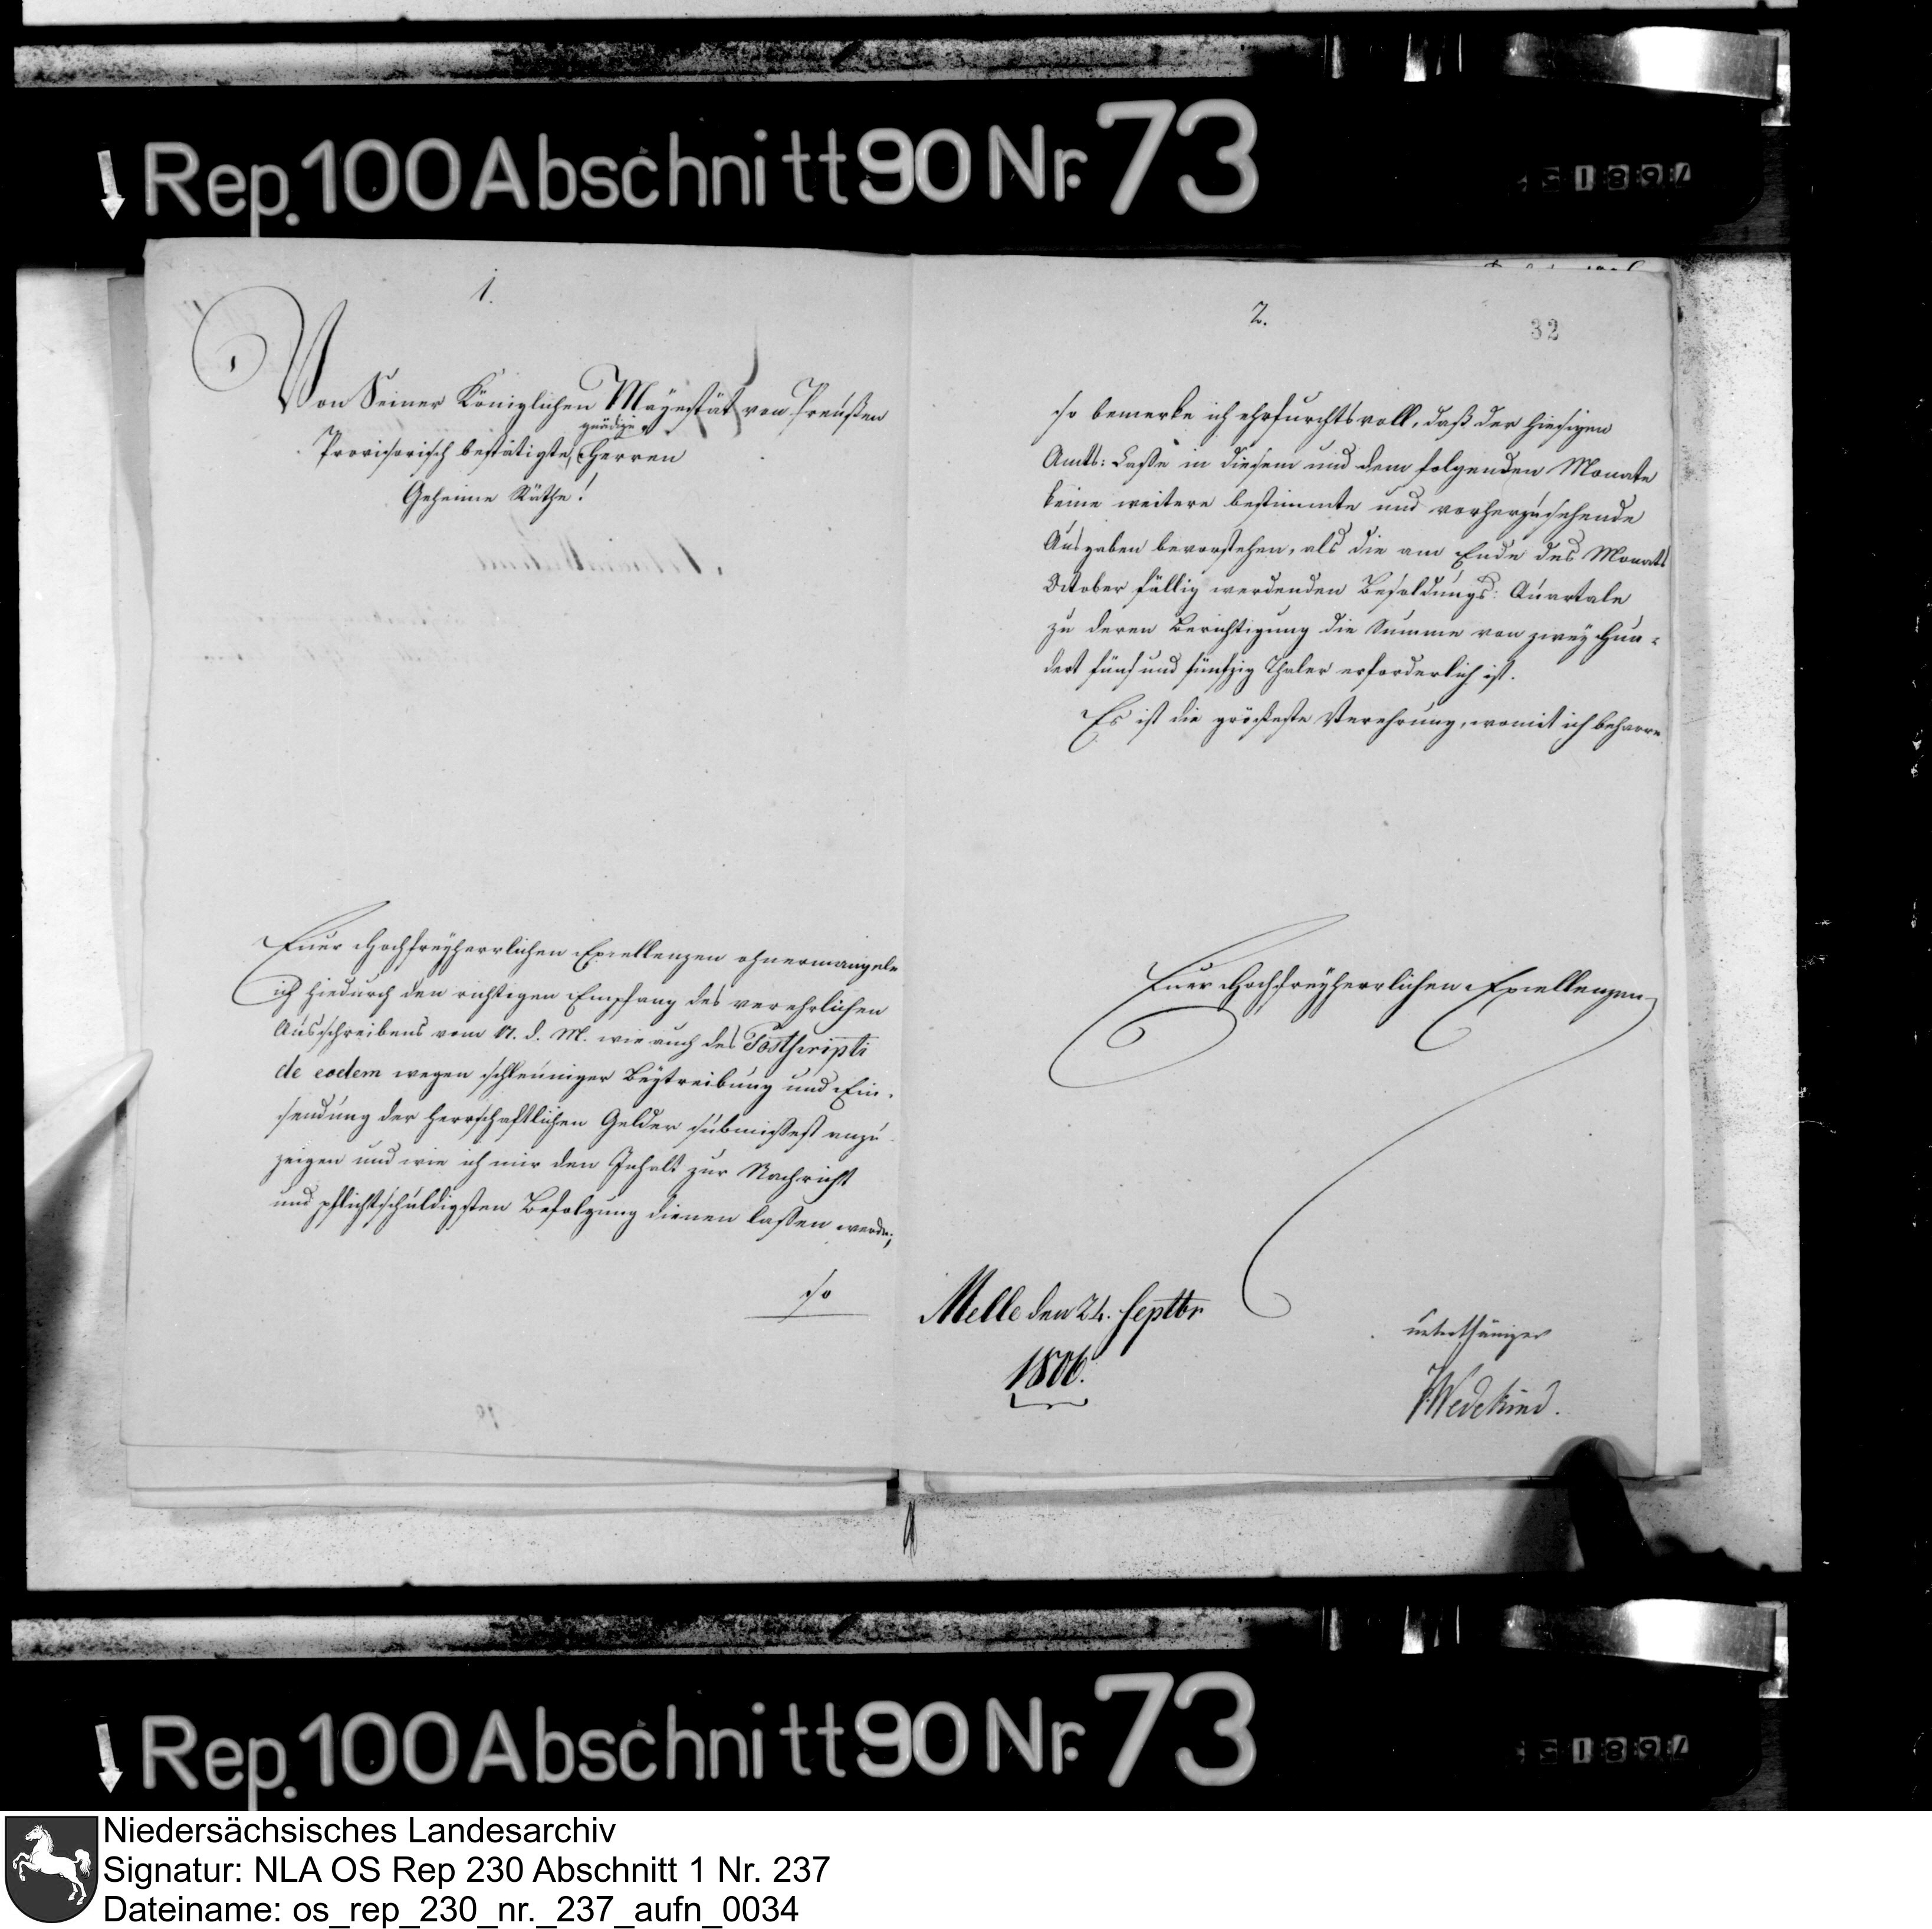 Rep. 100 Abschnitt 90 Nr. 73
1.
Von Seiner Königlichen Mayestät von Preußen
gnädige
Provisorisch bestätigte, Herren
Geheime Räthe!
Euer Hochfreyherrlichen Excellenzen ohnermangele
ich hiedurch den richtigen Empfang des verehrlichen
Ausschreibens vom d. M. wie auch des Postscripti
de eodem wegen schleuniger Beytreibung und Ein-
sendung der herrschaftlichen Gelder submißest anzu-
zeigen und wie ich mir den Inhalt zur Nachricht
und pflichtschuldigsten Befolgung dienen laßen werde;
so
2.
32
so bemerke ich ehrfurchtsvoll, daß der hiesigen
Amts: Casse in diesem und dem folgenden Monate
keine weitere bestimmte und vorherzusehende
Ausgaben bevorstehen, als die am Ende des Monats
October fällig werdenden Besoldungs: Quartale
zu deren Berichtigung die Summe von zwey Hun-
dert fünf und fünfzig Thaler erforderlich ist.
Es ist die größeste Verehrung, womit ich beharre
Euer Hochfreyherrlichen Excellenzen
Melle den 24. Septbr
1806.
unterthäniger
Wedekind.
Rep. 100 Abschnitt 90 Nr. 73
Niedersächsisches Landesarchiv
Signatur: NLA OS Rep 230 Abschnitt 1 Nr. 237
Dateiname: os_rep_230_nr._237_aufn_0034